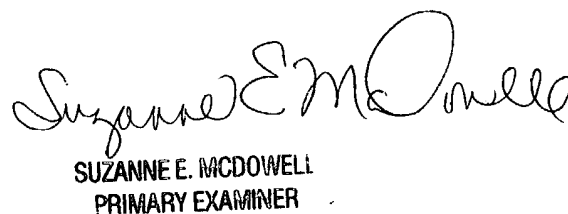 Suzanne E McDowell
SUZANNE E. MCDOWELL
PRIMARY EXAMINER